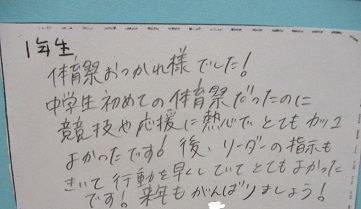 1年生
体育祭おつかれ様でした!
中学生初めての体育祭だったのに
競技や応援に熱心でとてもカッコ
よかったです!後、リーダーの指示も
きいて行動を早くしていてとてもよかった
です!来年もがんばりましょう!